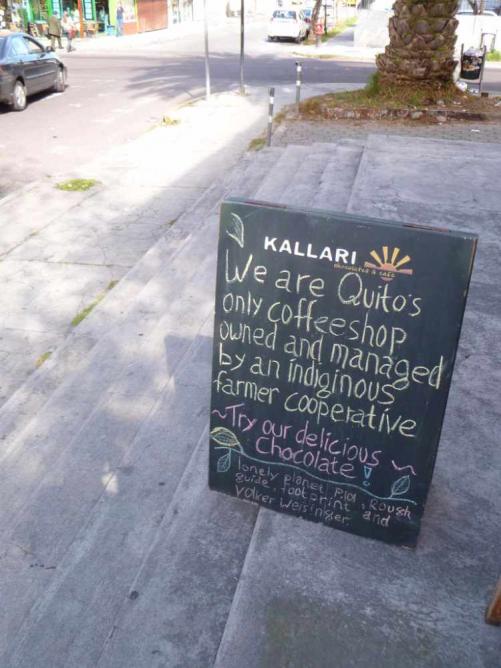 KALLARI
chocolates & café
We are Quito's
only coffeeshop
owned and managed
by an indiginous
farmer cooperative
~Try our delicious
Chocolate! ~
lonely planet, Rough
guide, footprint and
Volker Weisinger